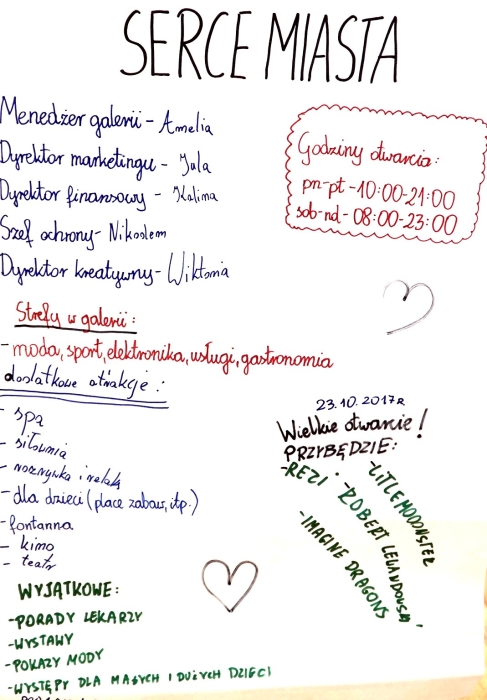 SERCE MIASTA
Menedżer galerii - Amelia
Dyrektor marketingu - Jula
Dyrektor finansowy - Kalina
Szef ochrony - Nikodem
Dyrektor kreatywny - Wiktoria
Godziny otwarcia:
pn-pt - 10:00-21:00
sob-nd - 08:00-23:00
Strefy w galerii:
- moda, sport, elektronika, usługi, gastronomia
dodatkowe atrakcje:
- spa
- siłownia
- rozrywka i relaks
- dla dzieci (place zabaw, itp.)
- fontanna
- kino
- teatr
23.10.2017r
Wielkie otwarcie!
PRZYBĘDZIE:
- REZI
- LITLEMOOONSTER
- ROBERT LEWANDOWSKI
- IMAGINE DRAGONS
WYJĄTKOWE:
- PORADY LEKARZY
- WYSTAWY
- POKAZY MODY
- WYSTĘPY DLA MAŁYCH I DUŻYCH DZIECI